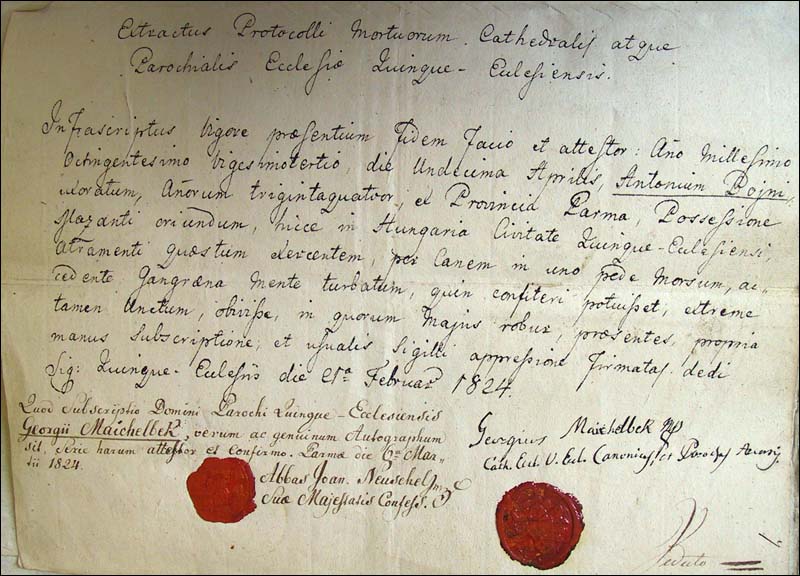 Extractus Protocolli Mortuorum Cathedralis atque
Parochialis Ecclesiæ Quinque-Eclesiensis.
Infrascriptus Vigore præsentium Fidem facio et attestor: Año Millesimo
Octingentesimo vigesimotertio, die Undecima Aprilis, Antonium Dojni,
uxoratum, Añorum trigintaquatuor, ex Provincia Parma, Possessione
Mazanti oriundum, hicce in Hungaria Civitate Quinque-Eclesiensi,
atramenti quæstum exercentem, per Canem in uno pede Morsum, ac-
cedente Gangræna mente turbatum, quin confiteri potuisset, extreme
tamen Unctum, obivisse, in quorum Majus robur, præsentes, propria
manus Subscriptione, et usualis Sigilli appressione firmatas dedi
Sig: Quinque-Eclesiis die 21ª Februar 1824.
Quod Subscriptio Domini Parochi Quinque-Ecclesiensis
Georgii Maichelbek, verum ac genuinum Autographum
sit, Serie harum attestor et Confirmo. Parmæ die 6ª Mar-
tii 1824.
Abbas Joan. Neuschel
Suæ Majestatis Confess.
Georgius Maichelbek
Cath. Eccl. V. Eccl. Canonicus, et Parochus
Veduto